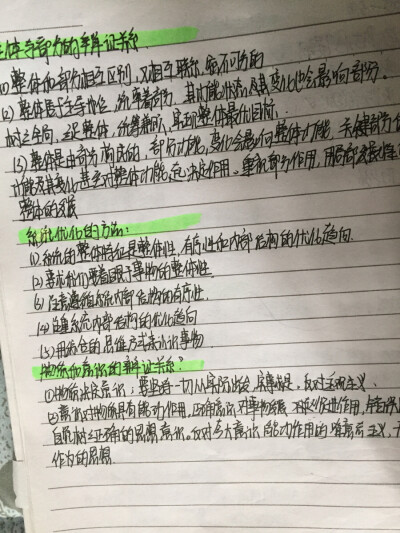 整体与部分的辩证关系
(1)整体和部分相互区别,又相互联系,密不可分的
(2)整体居于主导地位,统率着部分,其功能状态及其变化也会影响部分。
树立全局,立足整体,统筹兼顾,实现整体最优目标.
(3)整体是由部分构成的,部分功能,变化会影响整体功能,关键部分
功能及其变化甚至对整体功能起决定作用。重视部分作用,用局部发展
整体的发展
系统优化的方法:
(1)系统的整体特征是整体性、有序性和内部结构的优化趋向.
(2)要求我们要着眼于事物的整体性.
(3)注意遵循系统内部结构的有序性.
(4)注重系统内部结构的优化趋向
(5)用综合的思维方式来认识事物
物质和意识的辩证关系:
①物质决定意识;要坚持一切从实际出发,实事求是,反对主观主义.
②意识对物质具有能动作用,正确意识对事物发展起促进作用,
自觉树立正确的思想意识。反对夸大意识能动作用的唯意志主义,
作为的思想.